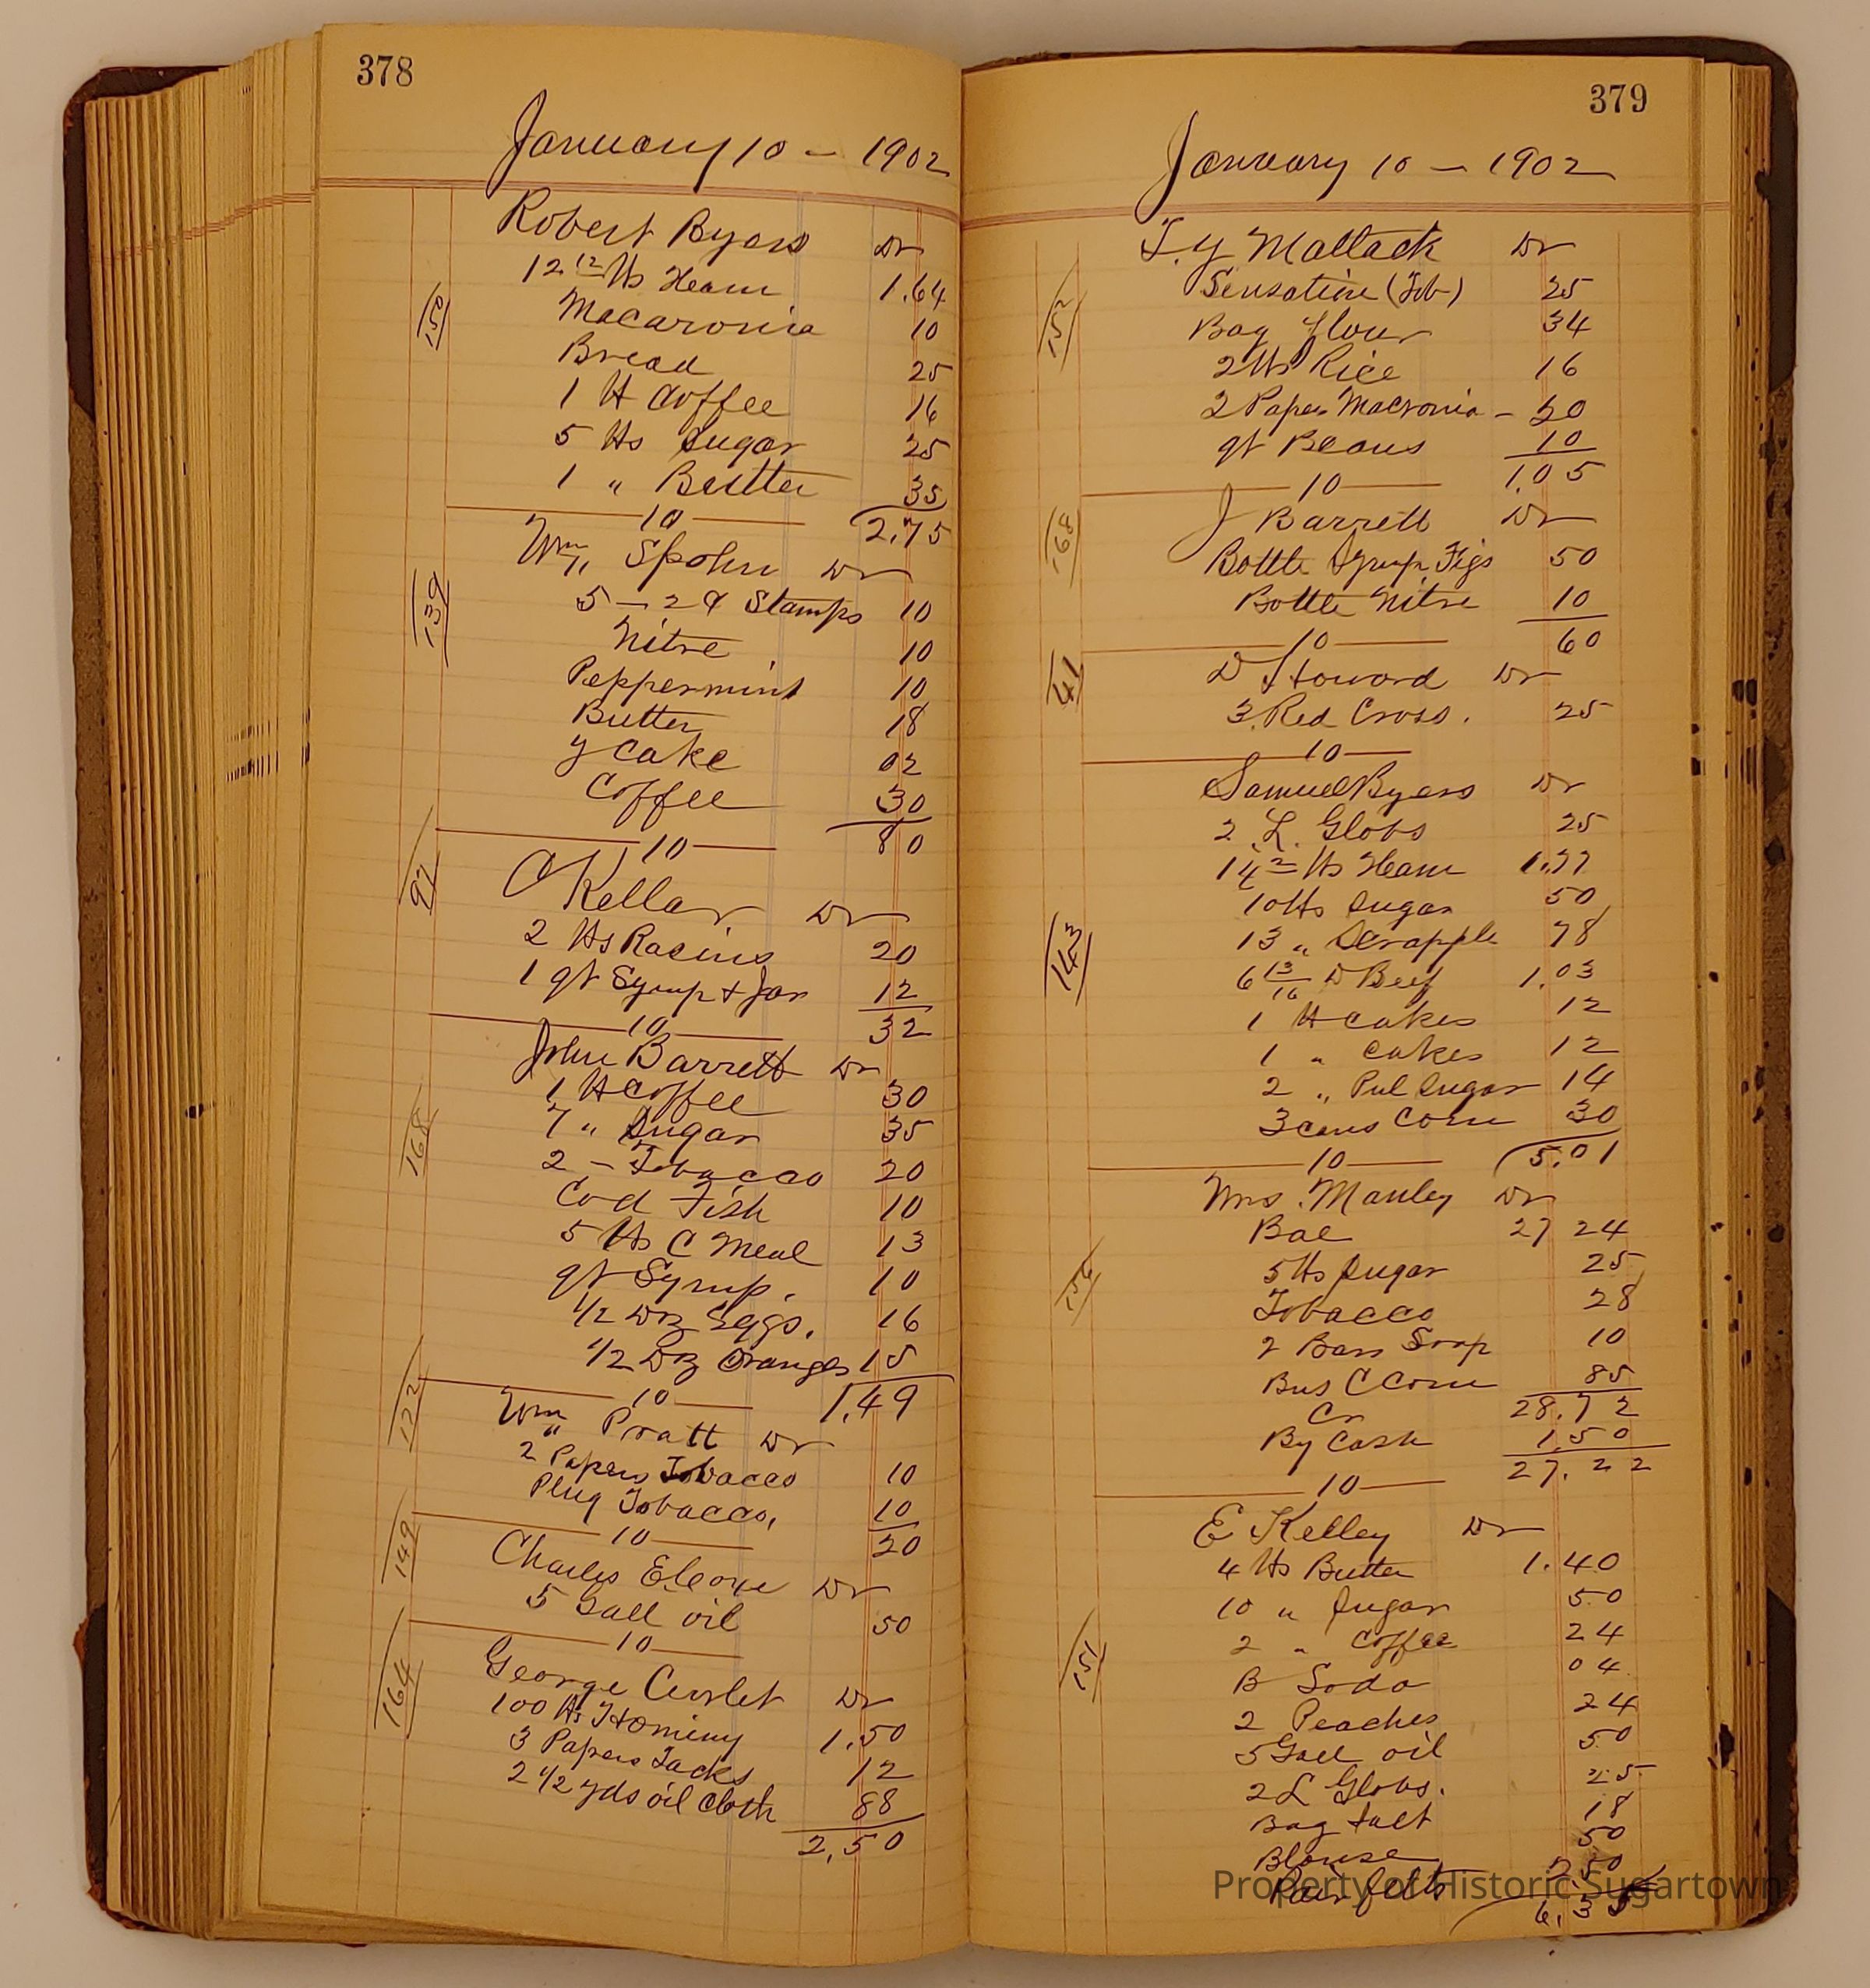 378
January 10 - 1902
Robert Byers Dr
12 12 lbs Ham 1.64
Macaronia 10
Bread 25
1 lb Coffee 16
5 lbs Sugar 25
1 " Butter 35
10 2.75
Wm. Spohn Dr
139
5 - 2 ¢ Stamps 10
Nitre 10
Peppermint 10
Butter 18
y Cake 02
Coffee 30
10 80
97
Kellar Dr
2 lbs Rasins 20
1 qt Syrup + Jar 12
10 32
John Barrett Dr
168
1 lb Coffee 30
7 " Sugar 35
2 - Tobacco 20
Cod Fish 10
5 lbs C Meal 13
qt Syrup. 10
1/2 Doz Eggs. 16
1/2 Doz Oranges 15
10 1.49
122
Wm Pratt Dr
2 Papers Tobacco 10
Plug Tobacco, 10
10 20
149
Charles Dr
5 Gall oil 50
10
164
George Dr
100 lbs Hominy 1.50
3 Papers Tacks 12
2 1/2 yds oil cloth 88
2.50
379
January 10 - 1902
T. Y Matlack Dr
Sensation (Tob) 25
152
Bag Flour 34
2 lbs Rice 16
2 Papers Macronia - 20
qt Beans 10
10 1.05
168
J Barrett Dr
Bottle Syrup Figs 50
Bottle Nitre 10
10 60
41
D Howard Dr
3 Red Cross. 25
10
Samuel Byers Dr
2 L. Globs 25
14 2 lbs Ham 1.77
10 lbs Sugar 50
143
13 " Scrapple 78
6 13/16 D Beef 1.03
1 lb cakes 12
1 " cakes 12
2 " Pul Sugar 14
3 cans Corn 30
10 5.01
Mrs. Manley Dr
Bal 27 24
156
5 lbs Sugar 25
Tobacco 28
2 Bars Soap 10
Bus C Corn 85
Cr 28.72
By Cash 1.50
10 27.22
E Kelley Dr
4 lbs Butter 1.40
10 " Sugar 50
2 " Coffee 24
151
B Soda 04
2 Peaches 24
5 Gall oil 50
2 L Globs. 25
Bag Salt 18
Blouse 50
Pair felts 2.50
6.35
Property of Historic Sugartown